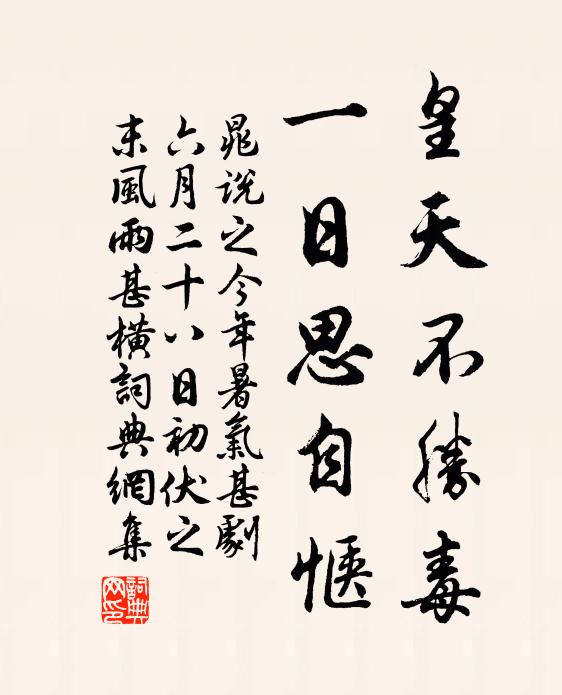 皇天不勝毒
一日思自愜
晁說之今年暑氣甚劇
六月二十八日初伏之
末風雨甚橫詞典網集
詞典
网印